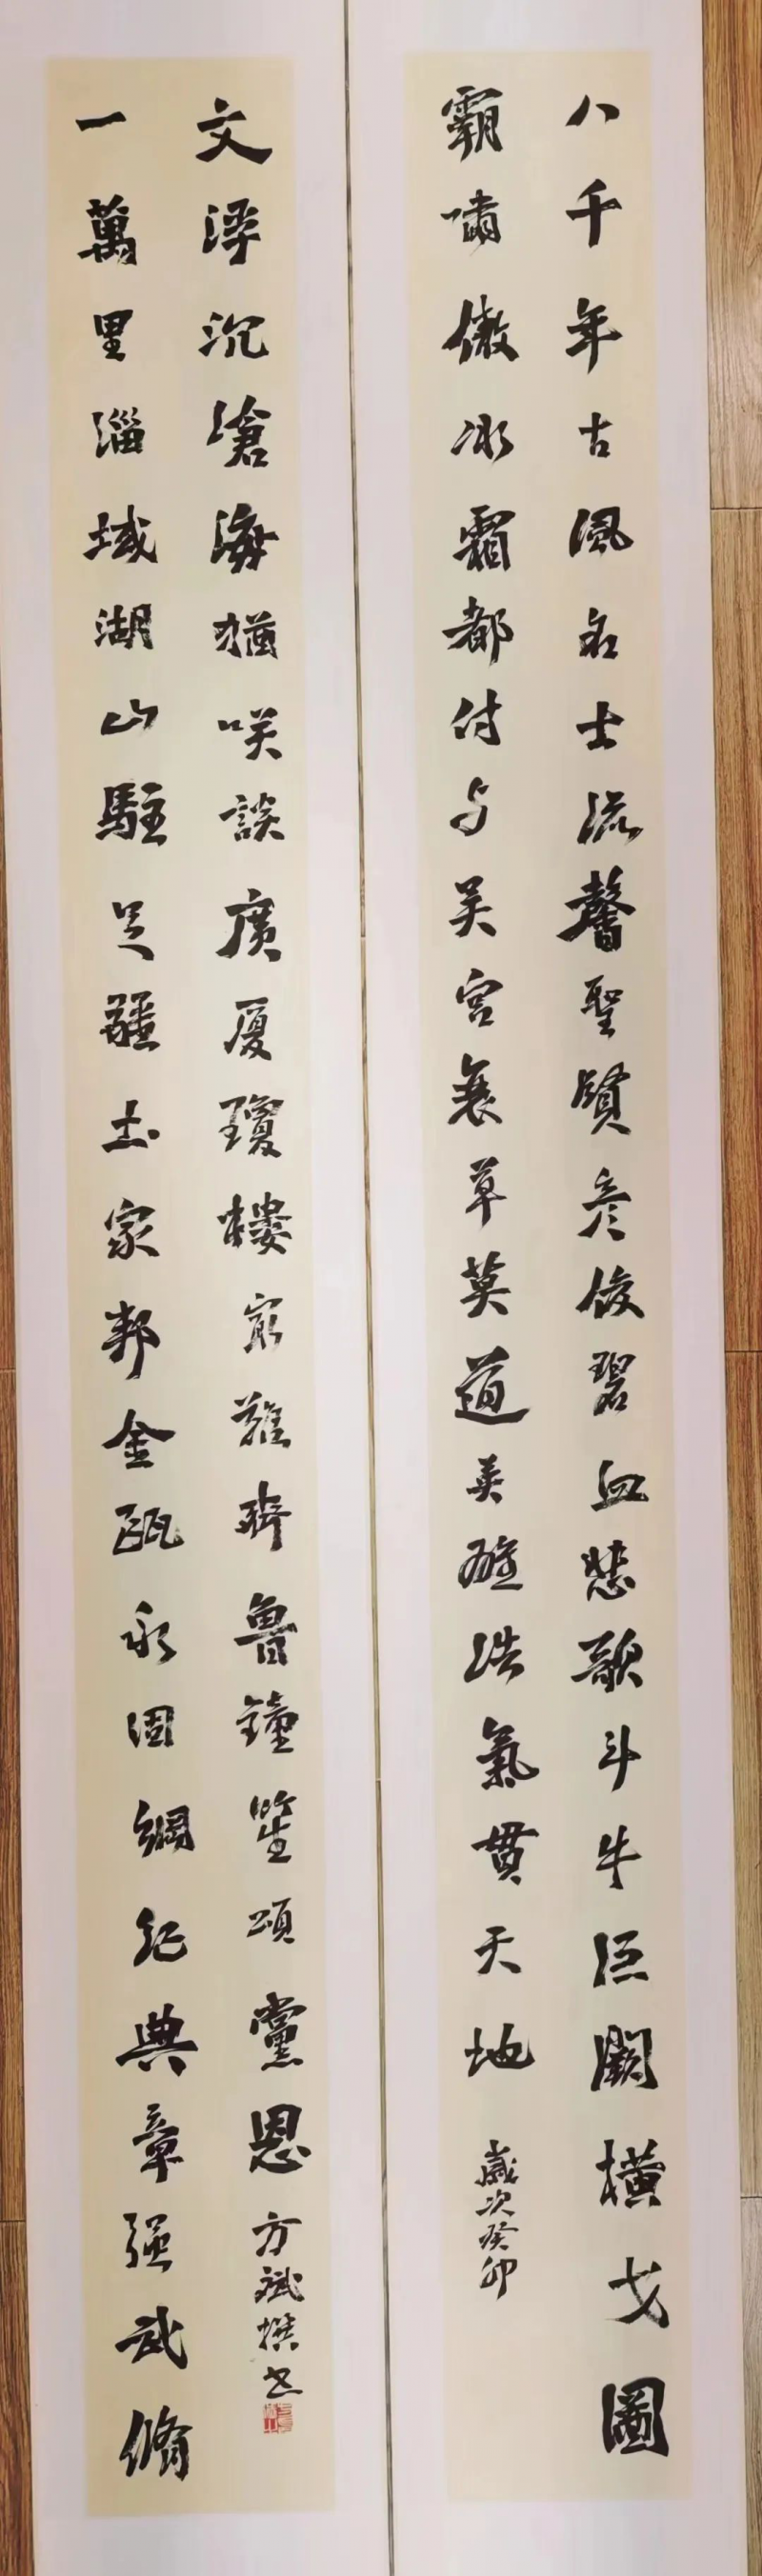 八千年古風名士流馨聖賢彦俊碧血悲歌斗牛闕橫戈圖
霸嘯傲冰霜都付与吴宫衰草莫道英雄浩氣貫天地
歲次癸卯
一萬里淄域湖山駐足疆土家邦金甌永固綱紀典章强武脩
文浮沉滄海猶咲談廣厦瓊樓冣難齊魯鐘笙頌黨恩
方斌撰书